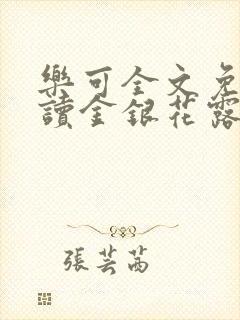 樂可全文免
讀金銀花露
張芸茜